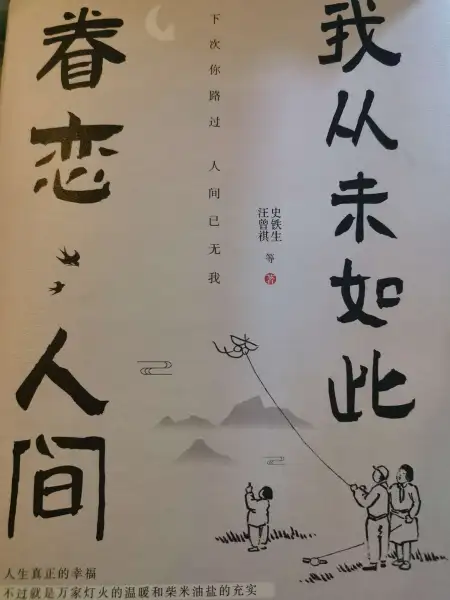 我从未如此
眷恋人间
下次你路过 人间已无我
史铁生
汪曾祺
等
著
人生真正的幸福
不过就是万家灯火的温暖和柴米油盐的充实